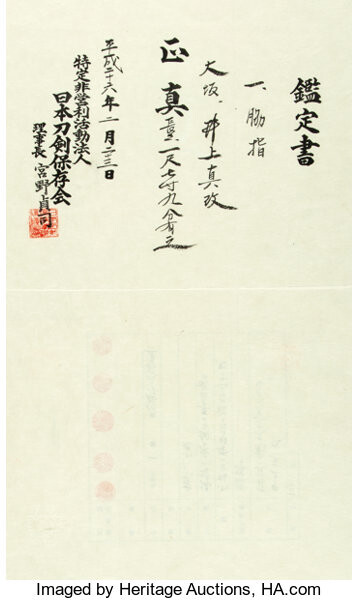 鑑定書
一、脇指
大坂、井上真改
正真 長一尺七寸九分有之
平成二十六年二月二三日
特定非営利活動法人
日本刀剣保存会
理事長 宮野貞司
Imaged by Heritage Auctions, HA.com